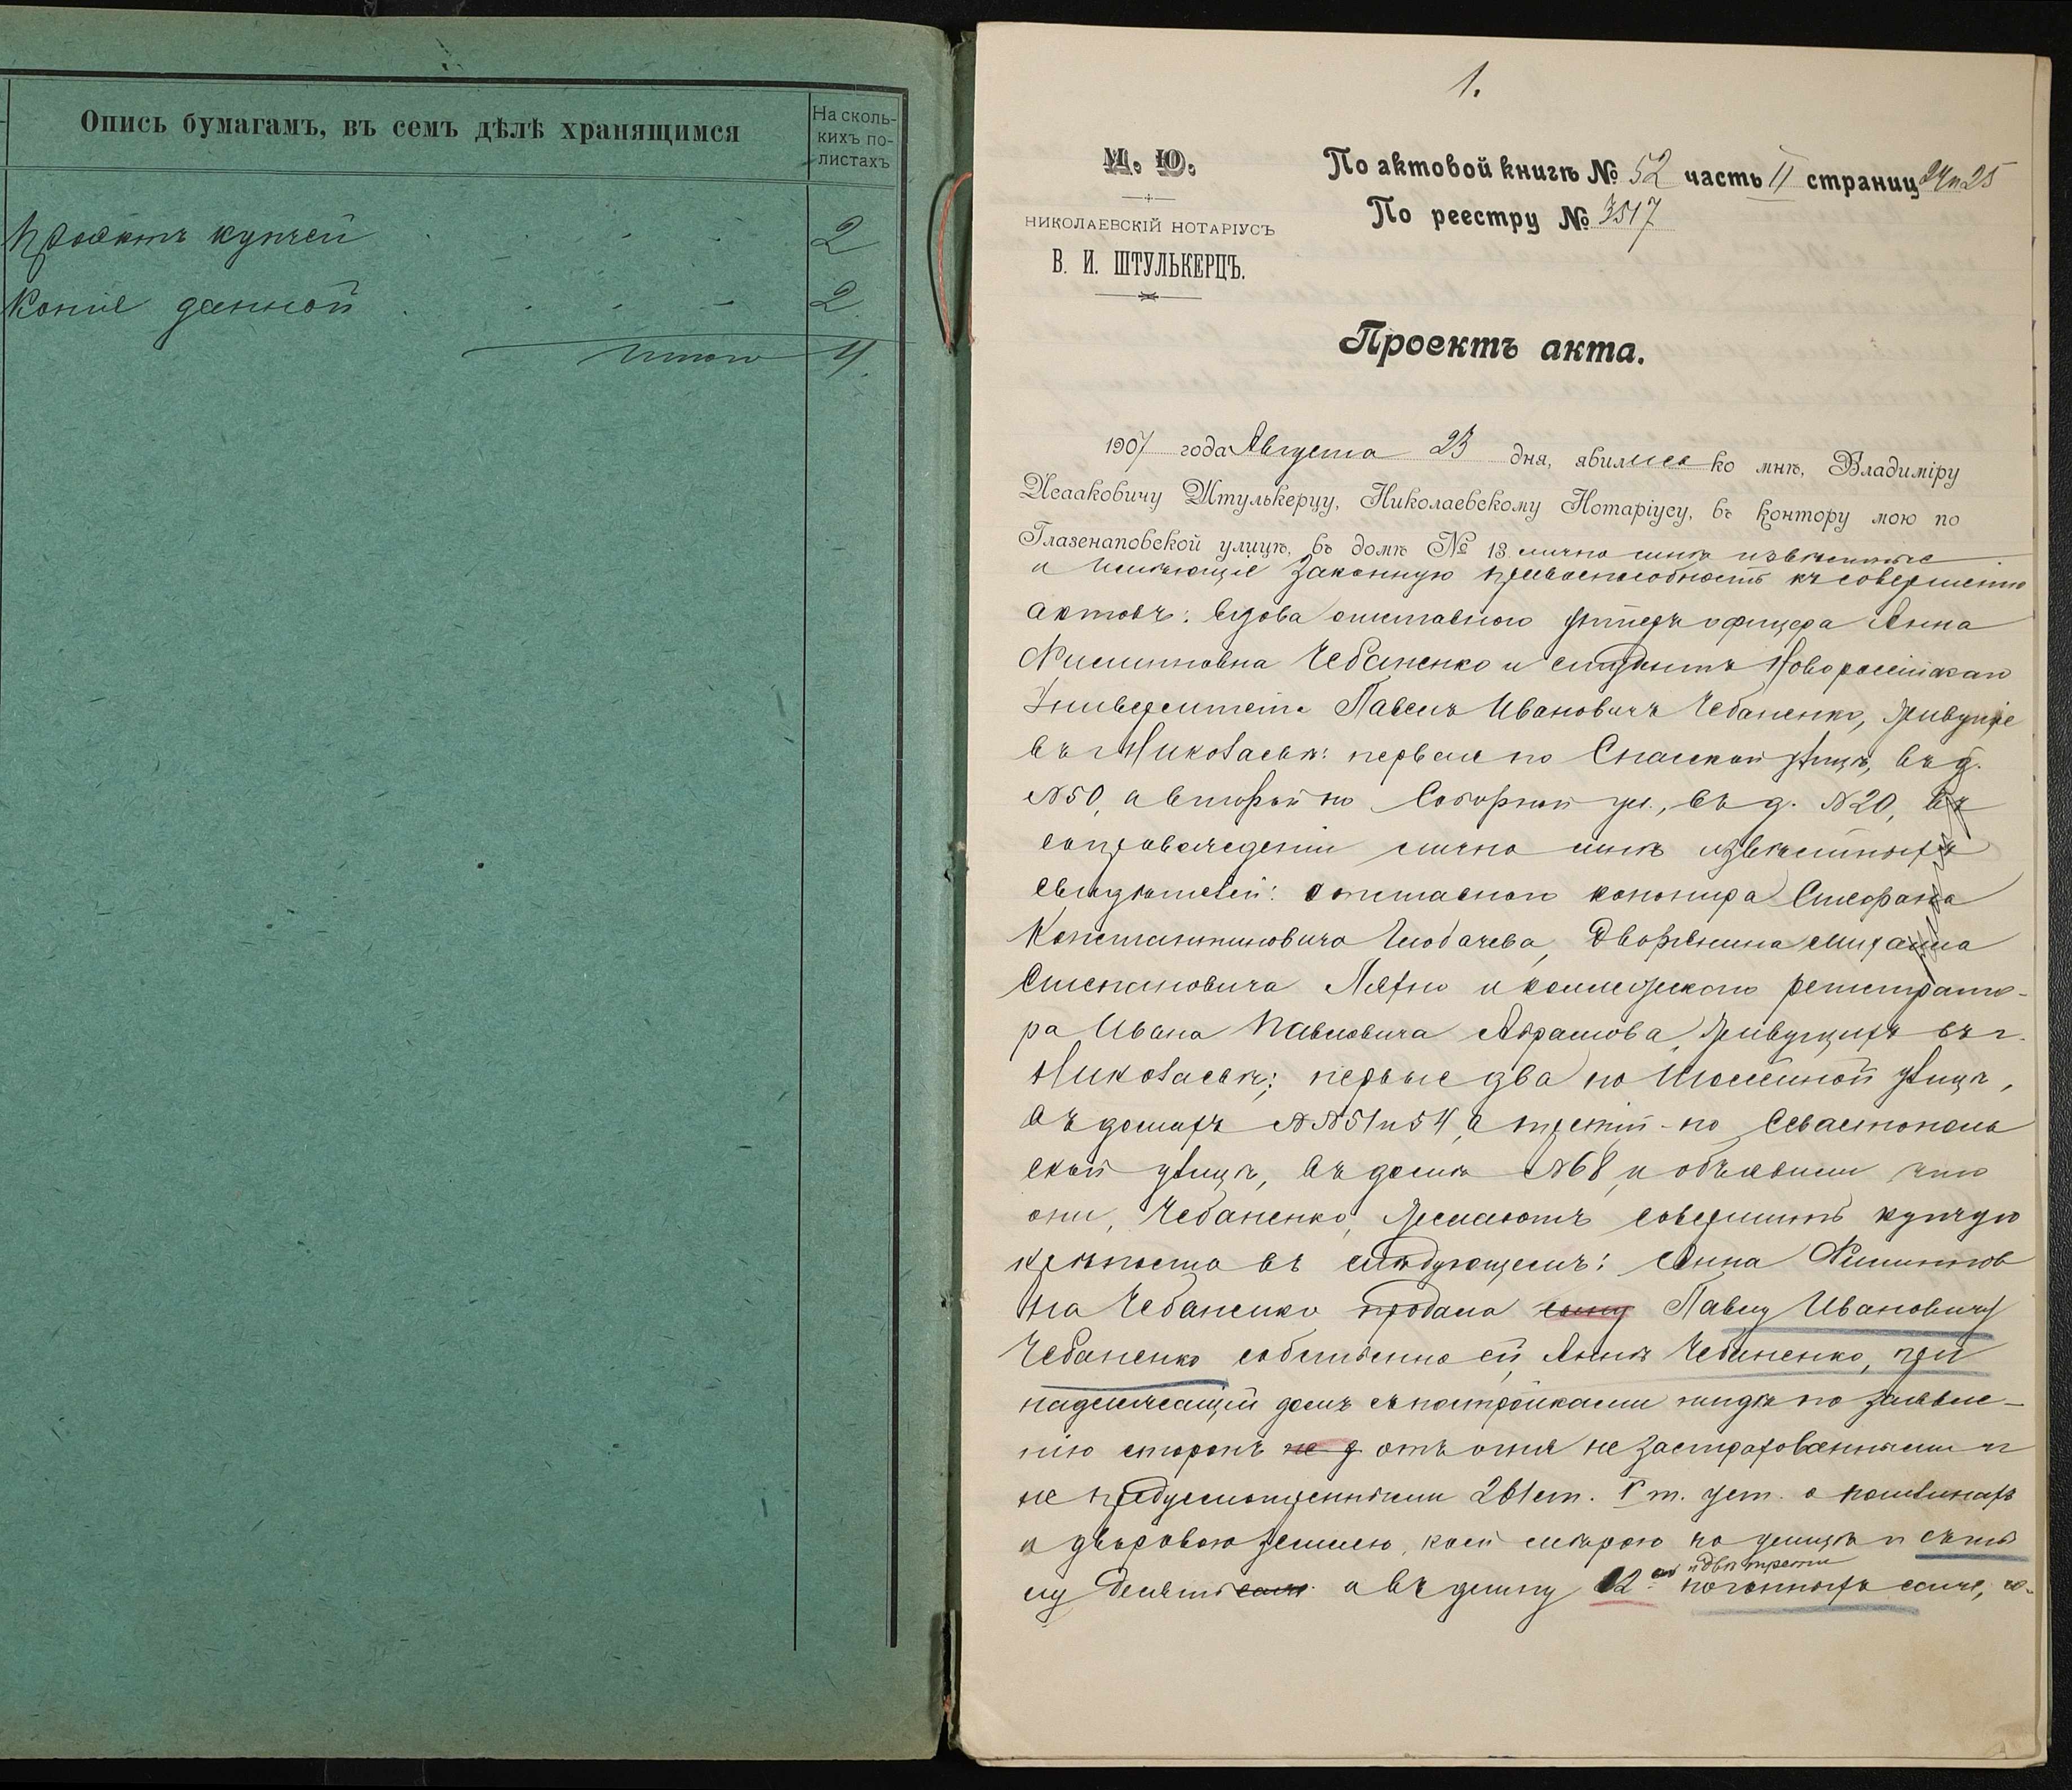 Опись бумагамъ, въ семъ дѣлѣ хранящимся
На сколь-
кихъ по-
листахъ
Проектъ купчей 2
Копія данной 2
Итого 4.
1.
М. Ю.
НИКОЛАЕВСКІЙ НОТАРІУСЪ
В. И. ШТУЛЬКЕРЦЪ.
По актовой книгѣ № 52 часть II страниц 24 и 25
По реестру № 3517
Проектъ акта.
1907 года Августа 23 дня, явились ко мнѣ, Владиміру
Исааковичу Штулькерцу, Николаевскому Нотаріусу, въ контору мою по
Глазенаповской улицѣ, въ домѣ № 13 лично мнѣ извѣстные
и имѣющіе законную правоспособность къ совершенію
актовъ: вдова отставного унтеръ офицера Анна
Чебаненко и студентъ Новороссійскаго
Университета Павелъ Ивановичъ Чебаненко, живущіе
въ г. Николаевѣ: первая по Спасской улицѣ, въ д.
№ 50, а второй по Соборной ул., въ д. № 20, въ
сопровожденіи лично мнѣ извѣстныхъ
свидѣтелей: отставного канонира Стефана
Константиновича Дворянина
Степановича и коллежскаго регистрато-
ра Ивана Павловича Абрамова, живущихъ въ г.
Николаевѣ; первые два по улицѣ,
въ домахъ №№ 51 и 54, а третій - по Севастополь
ской улицѣ, въ домѣ № 68, и объявили что
они, Чебаненко, желаютъ совершить купчую
крѣпость въ слѣдующемъ: Анна
на Чебаненко продала сыну Павлу Ивановичу
Чебаненко собственно ей, Аннѣ Чебаненко, при
надлежащій домъ съ постройками нигдѣ по заявле-
нію сторонъ не отъ огня не застрахованными и
не предусмотренными 261 ст. V т. уст. о пошлинахъ
и дворовою землею, коей мѣрою по улицѣ и съты
и двѣ трети
лу десять саж. а въ длину 12 погонныхъ саж.,